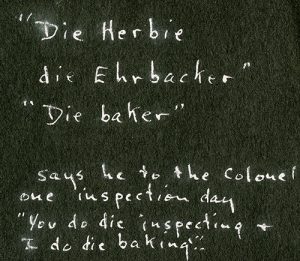 "Die Herbie
die Ehrbacker"
"Die baker"
says he to the Colonel
one inspection day
"You do die inspecting +
I do die baking"